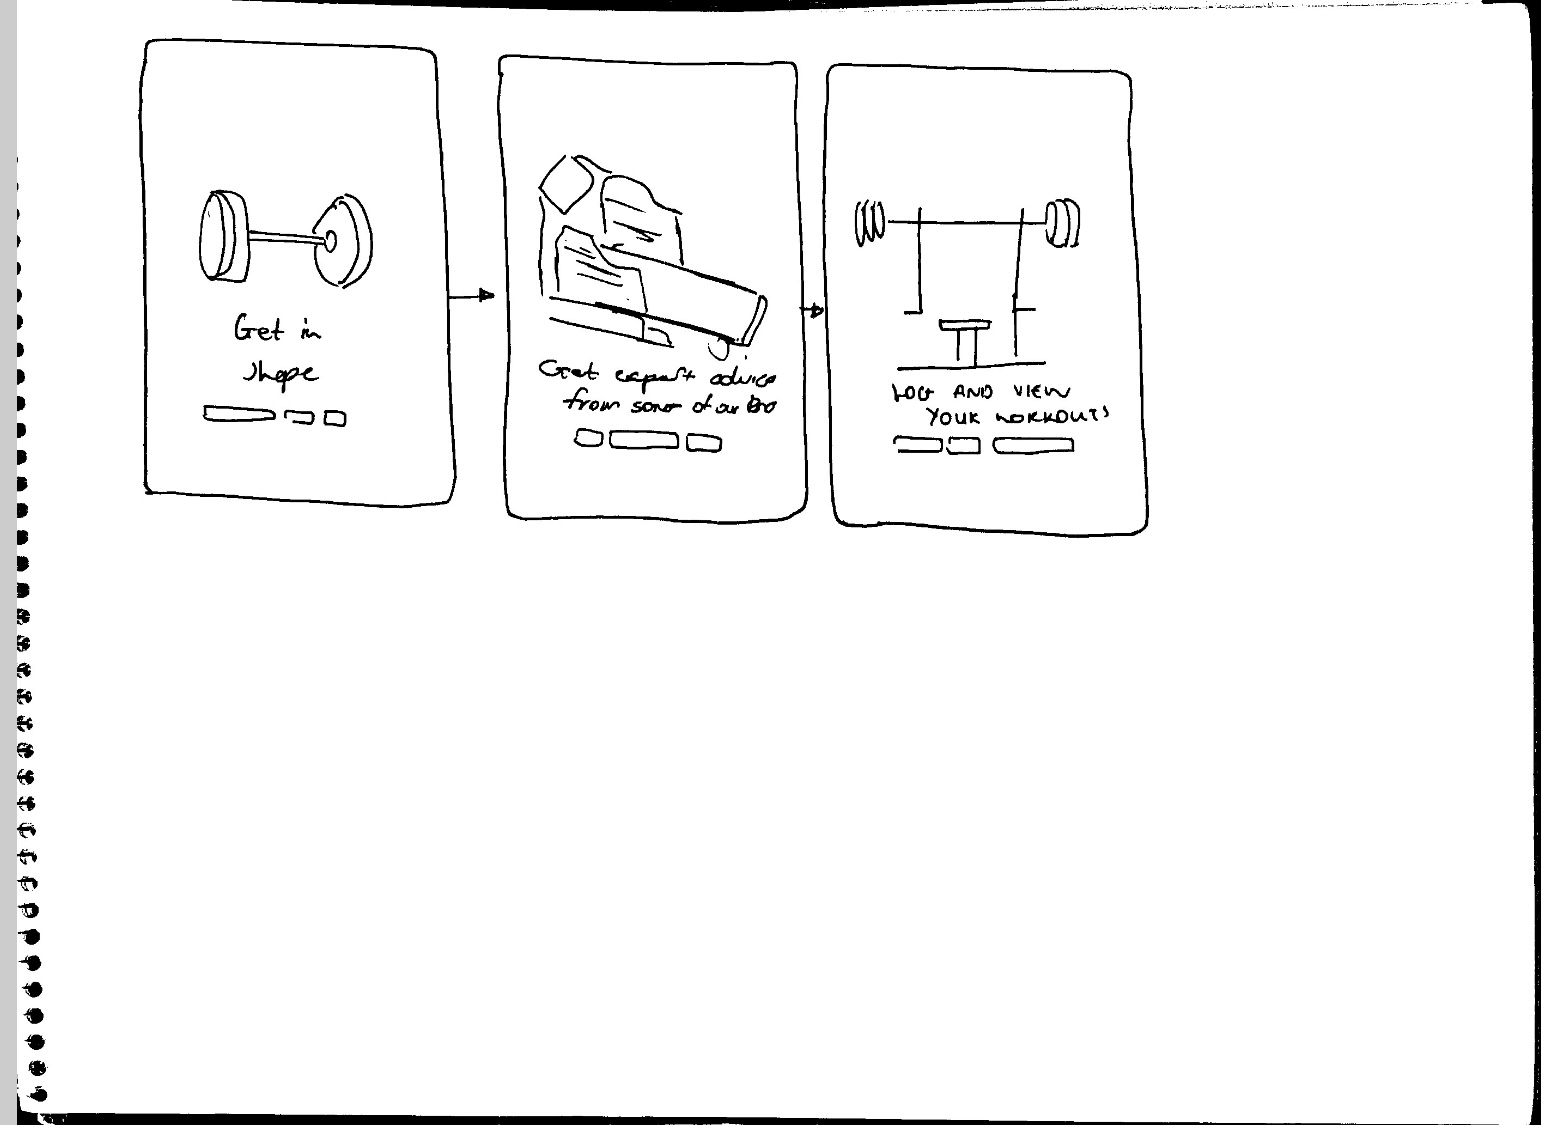 Get in
shape
Get expert advice
from some of our Bro
LOG AND VIEW
YOUR WORKOUTS